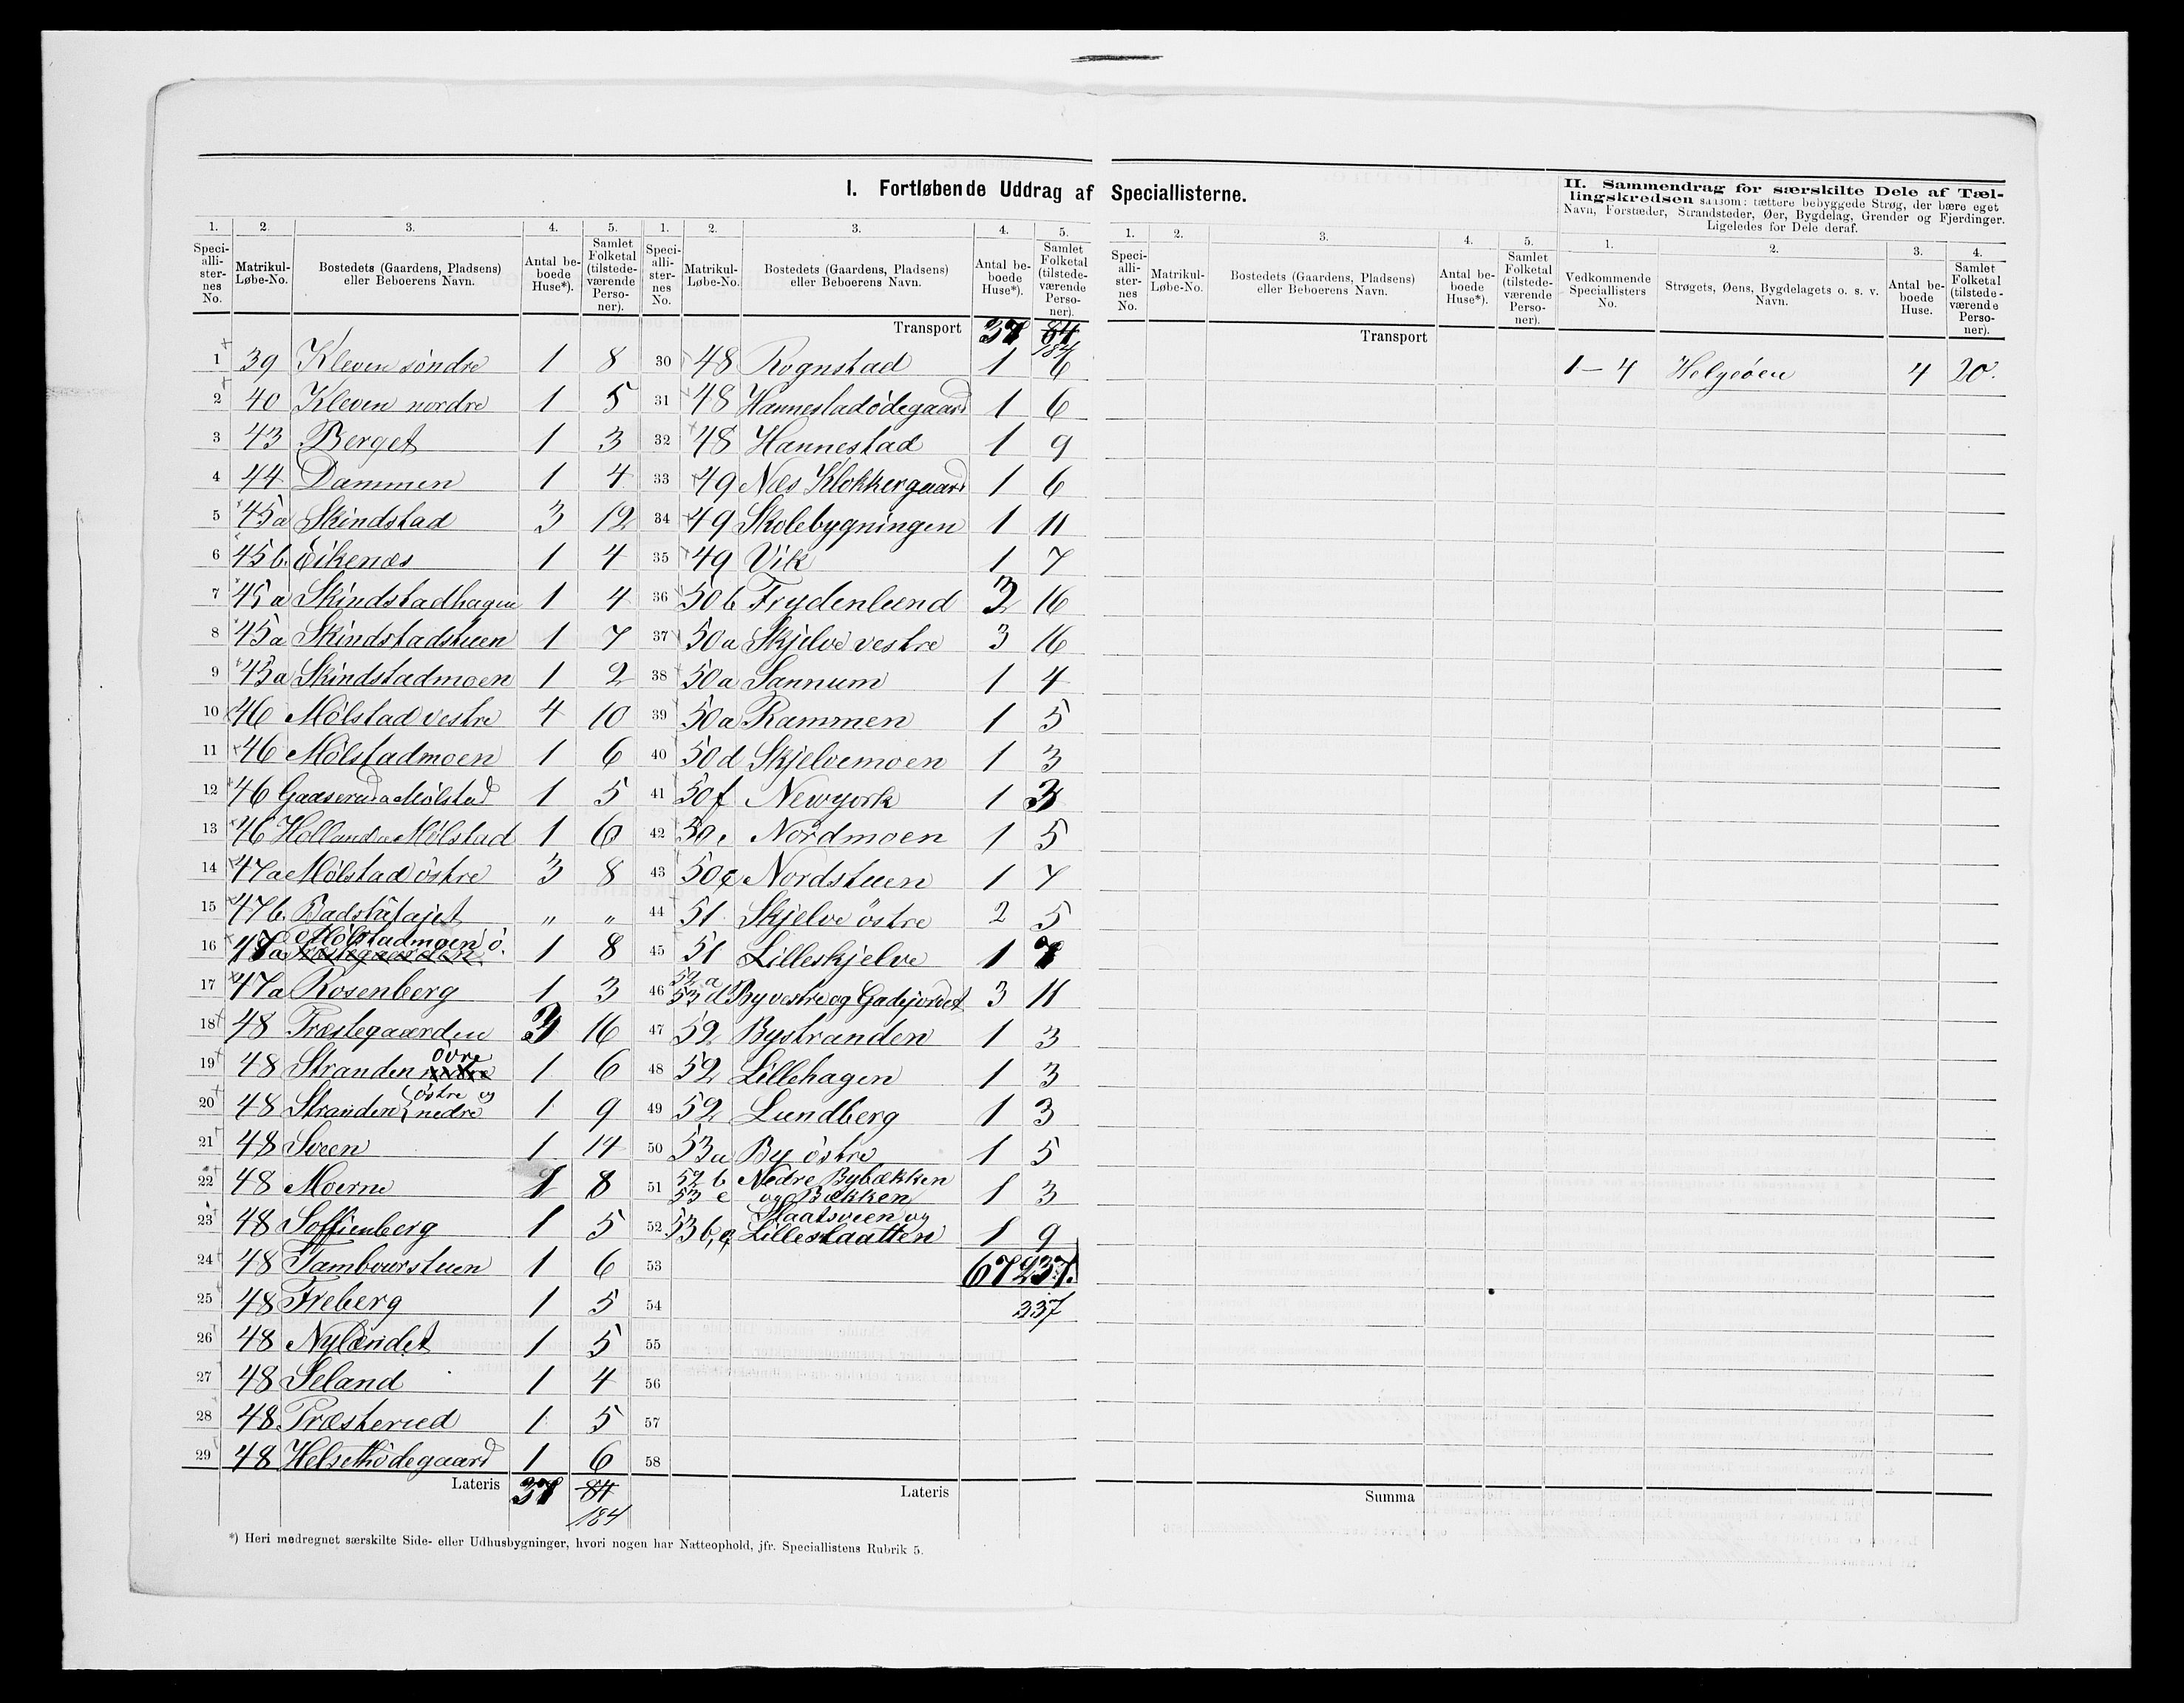 I. Fortløbende Uddrag af Speciallisterne.
1. 2. 3. 4. 5.
Speciallisternes No. Matrikul-Løbe-No. Bostedets (Gaardens, Pladsens) eller Beboerens Navn. Antal beboede Huse*). Samlet Folketal (tilstedeværende Personer).
1 39 Kleven søndre 1 8
2 40 Kleven nordre 1 5
3 43 Berget 1 3
4 44 Dammen 1 4
5 45a Skindstad 3 12
6 45b. Eikenæs 1 4
7 45a Skindstadhagen 1 4
8 45a Skindstadstuen 1 7
9 45a Skindstadmoen 1 2
10 46 Mölstad vestre 4 10
11 46 Mölstadmoen 1 6
12 46 Gaaserud a Mölstad 1 5
13 46 Holland a Mölstad 1 6
14 47a Mölstad östre 3 8
15 47b. „ „
16 47a Mölstadmoen ö. 1 8
17 47a Rosenberg 1 3
18 48 Præstegaarden 3 16
19 48 Stranden övre 1 6
20 48 Stranden { östre og nedre 1 9
21 48 Sveen 1 14
22 48 Moerne 8
23 48 Soffienberg 1 5
24 48 Tambourstuen 1 6
25 48 Freberg 1 5
26 48 Nylændet 1 5
27 48 Seland 1 4
28 48 Præsterud 1 5
29 48 Helsethödegaard 1 6
Lateris 37 84
184
1. 2. 3. 4. 5.
Speciallisternes No. Matrikul-Løbe-No. Bostedets (Gaardens, Pladsens) eller Beboerens Navn. Antal beboede Huse*). Samlet Folketal (tilstedeværende Personer).
Transport 37 84
184
30 48 Rognstad 1 6
31 48 Hannestadödegaard 1 6
32 48 Hannestad 1 9
33 49 Næs Klokkergaard 1 6
34 49 Skolebygningen 1 11
35 49 Vik 1 7
36 50b Frydenlund 16
37 50a Skjelve vestre 3 16
38 50a Sannum 1 4
39 50a Rammen 1 5
40 50d Skjelvemoen 1 3
41 50f Newyork 1 3
42 50e Nordmoen 1 5
43 50c Nordstuen 1 7
44 51 Skjelve östre 2 5
45 51 Lilleskjelve 1 7
46 52a 53d By vestre og Gadejordet 3 11
47 52 Bystranden 1 3
48 52 Lillehagen 1 3
49 52 Lundberg 1 3
50 53a By östre 1 5
51 52b 53e Nedre Bybækken og Bækken 1 3
52 53b,c Slaatsveen og Lilleslaatten 1 9
53 67 237.
54 337
55
56
57
58
Lateris
*) Heri medregnet særskilte Side- eller Udhusbygninger, hvori nogen har Natteophold, jfr. Speciallistens Rubrik 5.
1. 2. 3. 4. 5.
Speciallisternes No. Matrikul-Løbe-No. Bostedets (Gaardens, Pladsens) eller Beboerens Navn. Antal beboede Huse*). Samlet Folketal (tilstedeværende Personer).
Transport
Summa
II. Sammendrag for særskilte Dele af Tællingskredsen saasom: tættere bebyggede Strøg, der bære eget
Navn, Forstæder, Strandsteder, Øer, Bygdelag, Grender og Fjerdinger.
Ligeledes for Dele deraf.
1. 2. 3. 4.
Vedkommende Speciallisters No. Strøgets, Øens, Bygdelagets o. s. v. Navn. Antal beboede Huse. Samlet Folketal (tilstedeværende Personer).
1–4 Helgeöen 4 20.